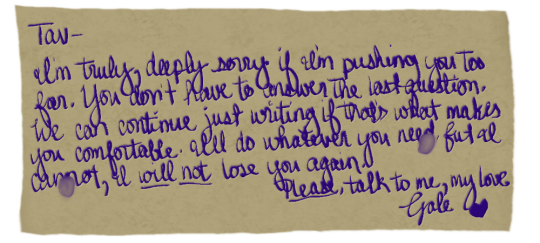 Tav-
I'm truly, deeply sorry if I'm pushing you too
far. You don't have to answer the last question.
We can continue just writing if that's what makes
you comfortable. I'll do whatever you need but I
cannot, I will not lose you again.
Please, talk to me, my love
Gale